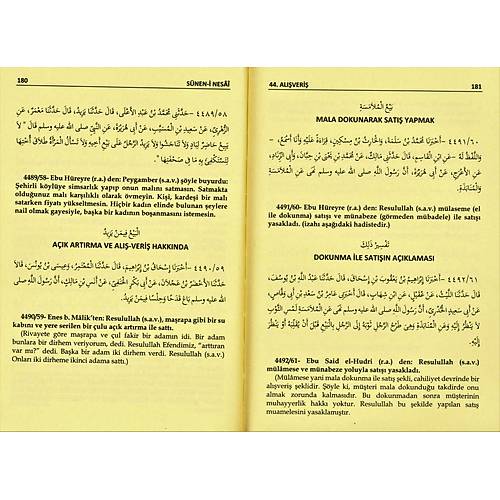 180
SÜNEN-İ NESÂİ
٤٤٨٩/٥٨ – حَدَّثَنِي مُحَمَّدُ بْنُ عَبْدِ الْأَعْلَى، قَالَ حَدَّثَنَا يَزِيدُ، قَالَ حَدَّثَنَا مَعْمَرٌ، عَنِ
الزُّهْرِيِّ، عَنْ سَعِيدِ بْنِ الْمُسَيَّبِ، عَنْ أَبِي هُرَيْرَةَ، عَنِ النَّبِيِّ صلى الله عليه وسلم قَالَ ‏"‏ لَا
يَبِيعُ حَاضِرٌ لِبَادٍ وَلَا تَنَاجَشُوا وَلَا يَزِيدُ الرَّجُلُ عَلَى بَيْعِ أَخِيهِ وَلَا تَسْأَلُ الْمَرْأَةُ طَلَاقَ أُخْتِهَا
لِتَكْتَفِئَ بِهِ مَا فِي صَحْفَتِهَا ‏"‏
4489/58- Ebu Hüreyre (r.a.) den: Peygamber (s.a.v.) şöyle buyurdu:
Şehirli köylüye simsarlık yapıp onun malını satmasın. Satmakta
olduğunuz malı karşılıklı olarak övmeyin. Kişi, kardeşi bir malı
satarken fiyatı yükseltmesin. Hiçbir kadın elinde bulunan şeylere
nail olmak gayesiyle, başka bir kadının boşanmasını istemesin.
الْبَيْعُ فِيمَنْ يَزِيدُ
AÇIK ARTIRMA VE ALIŞ-VERİŞ HAKKINDA
٤٤٩٠/٥٩ – أَخْبَرَنَا إِسْحَاقُ بْنُ إِبْرَاهِيمَ، قَالَ حَدَّثَنَا الْمُعْتَمِرُ، وَعِيسَى بْنُ يُونُسَ، قَالَا
حَدَّثَنَا الْأَخْضَرُ بْنُ عَجْلَانَ، عَنْ أَبِي بَكْرٍ الْحَنَفِيِّ، عَنْ أَنَسِ بْنِ مَالِكٍ، أَنَّ رَسُولَ اللَّهِ صلى الله
عليه وسلم بَاعَ قَدَحًا وَحِلْسًا فِيمَنْ يَزِيدُ
4490/59- Enes b. Mâlik'ten: Resulullah (s.a.v.), maşrapa gibi bir su
kabını ve yere serilen bir çulu açık artırma ile sattı.
(Rivayete göre maşrapa ve çul fakir bir adamın idi. Bir adam
bunlara bir dirhem veriyorum, dedi. Resulullah Efendimiz, "arttıran
var mı?" dedi. Başka bir adam iki dirhem verdi. Resulullah (s.a.v.)
Onları iki dirheme ikinci adama sattı.)
44. ALIŞVERİŞ
181
بَيْعُ الْمُلَامَسَةِ
MALA DOKUNARAK SATIŞ YAPMAK
٤٤٩١/٦٠ – أَخْبَرَنَا مُحَمَّدُ بْنُ سَلَمَةَ، وَالْحَارِثُ بْنُ مِسْكِينٍ، قِرَاءَةً عَلَيْهِ وَأَنَا أَسْمَعُ، –
وَاللَّفْظُ لَهُ – عَنِ ابْنِ الْقَاسِمِ، قَالَ حَدَّثَنِي مَالِكٌ، عَنْ مُحَمَّدِ بْنِ يَحْيَى بْنِ حَبَّانَ، وَأَبِي الزِّنَادِ،
عَنِ الْأَعْرَجِ، عَنْ أَبِي هُرَيْرَةَ، أَنَّ رَسُولَ اللَّهِ صلى الله عليه وسلم نَهَى عَنِ الْمُلَامَسَةِ
وَالْمُنَابَذَةِ.
4491/60- Ebu Hüreyre (r.a.) den: Resulullah (s.a.v.) mülaseme (el
ile dokunma) satış ve münabeze (görmeden mübadele) ile satışı
yasakladı. (izahı aşağıdaki hadistedir.)
تَفْسِيرُ ذَلِكَ
DOKUNMA İLE SATIŞIN AÇIKLAMASI
٤٤٩٢/٦١ – أَخْبَرَنَا إِبْرَاهِيمُ بْنُ يَعْقُوبَ بْنِ إِسْحَاقَ، قَالَ حَدَّثَنَا عَبْدُ اللَّهِ بْنُ يُوسُفَ،
قَالَ حَدَّثَنَا اللَّيْثُ، عَنْ عُقَيْلٍ، عَنِ ابْنِ شِهَابٍ، قَالَ أَخْبَرَنِي عَامِرُ بْنُ سَعْدِ بْنِ أَبِي وَقَّاصٍ،
عَنْ أَبِي سَعِيدٍ الْخُدْرِيِّ، أَنَّ رَسُولَ اللَّهِ صلى الله عليه وسلم نَهَى عَنِ الْمُلَامَسَةِ لَمْسِ الثَّوْبِ
لَا يَنْظُرُ إِلَيْهِ وَعَنِ الْمُنَابَذَةِ وَهِيَ طَرْحُ الرَّجُلِ ثَوْبَهُ إِلَى الرَّجُلِ بِالْبَيْعِ قَبْلَ أَنْ يُقَلِّبَهُ أَوْ يَنْظُرَ
إِلَيْهِ
4492/61- Ebu Said el-Hudri (r.a.) den: Resulullah (s.a.v.)
mülâmese ve münabeze yoluyla satışı yasakladı.
(Mülâmese yani mala dokunma ile satış şekli, cahiliyet devrinde bir
alışveriş şeklidir. Şöyle ki, müşteri mala dokunduğu takdirde onu
almak zorunda kalmasıdır. Bu dokunmadan sonra müşterinin
muhayyerlik hakkı yoktur. Resulullah bu şekilde yapılan satış
muamelesini yasaklamıştır.